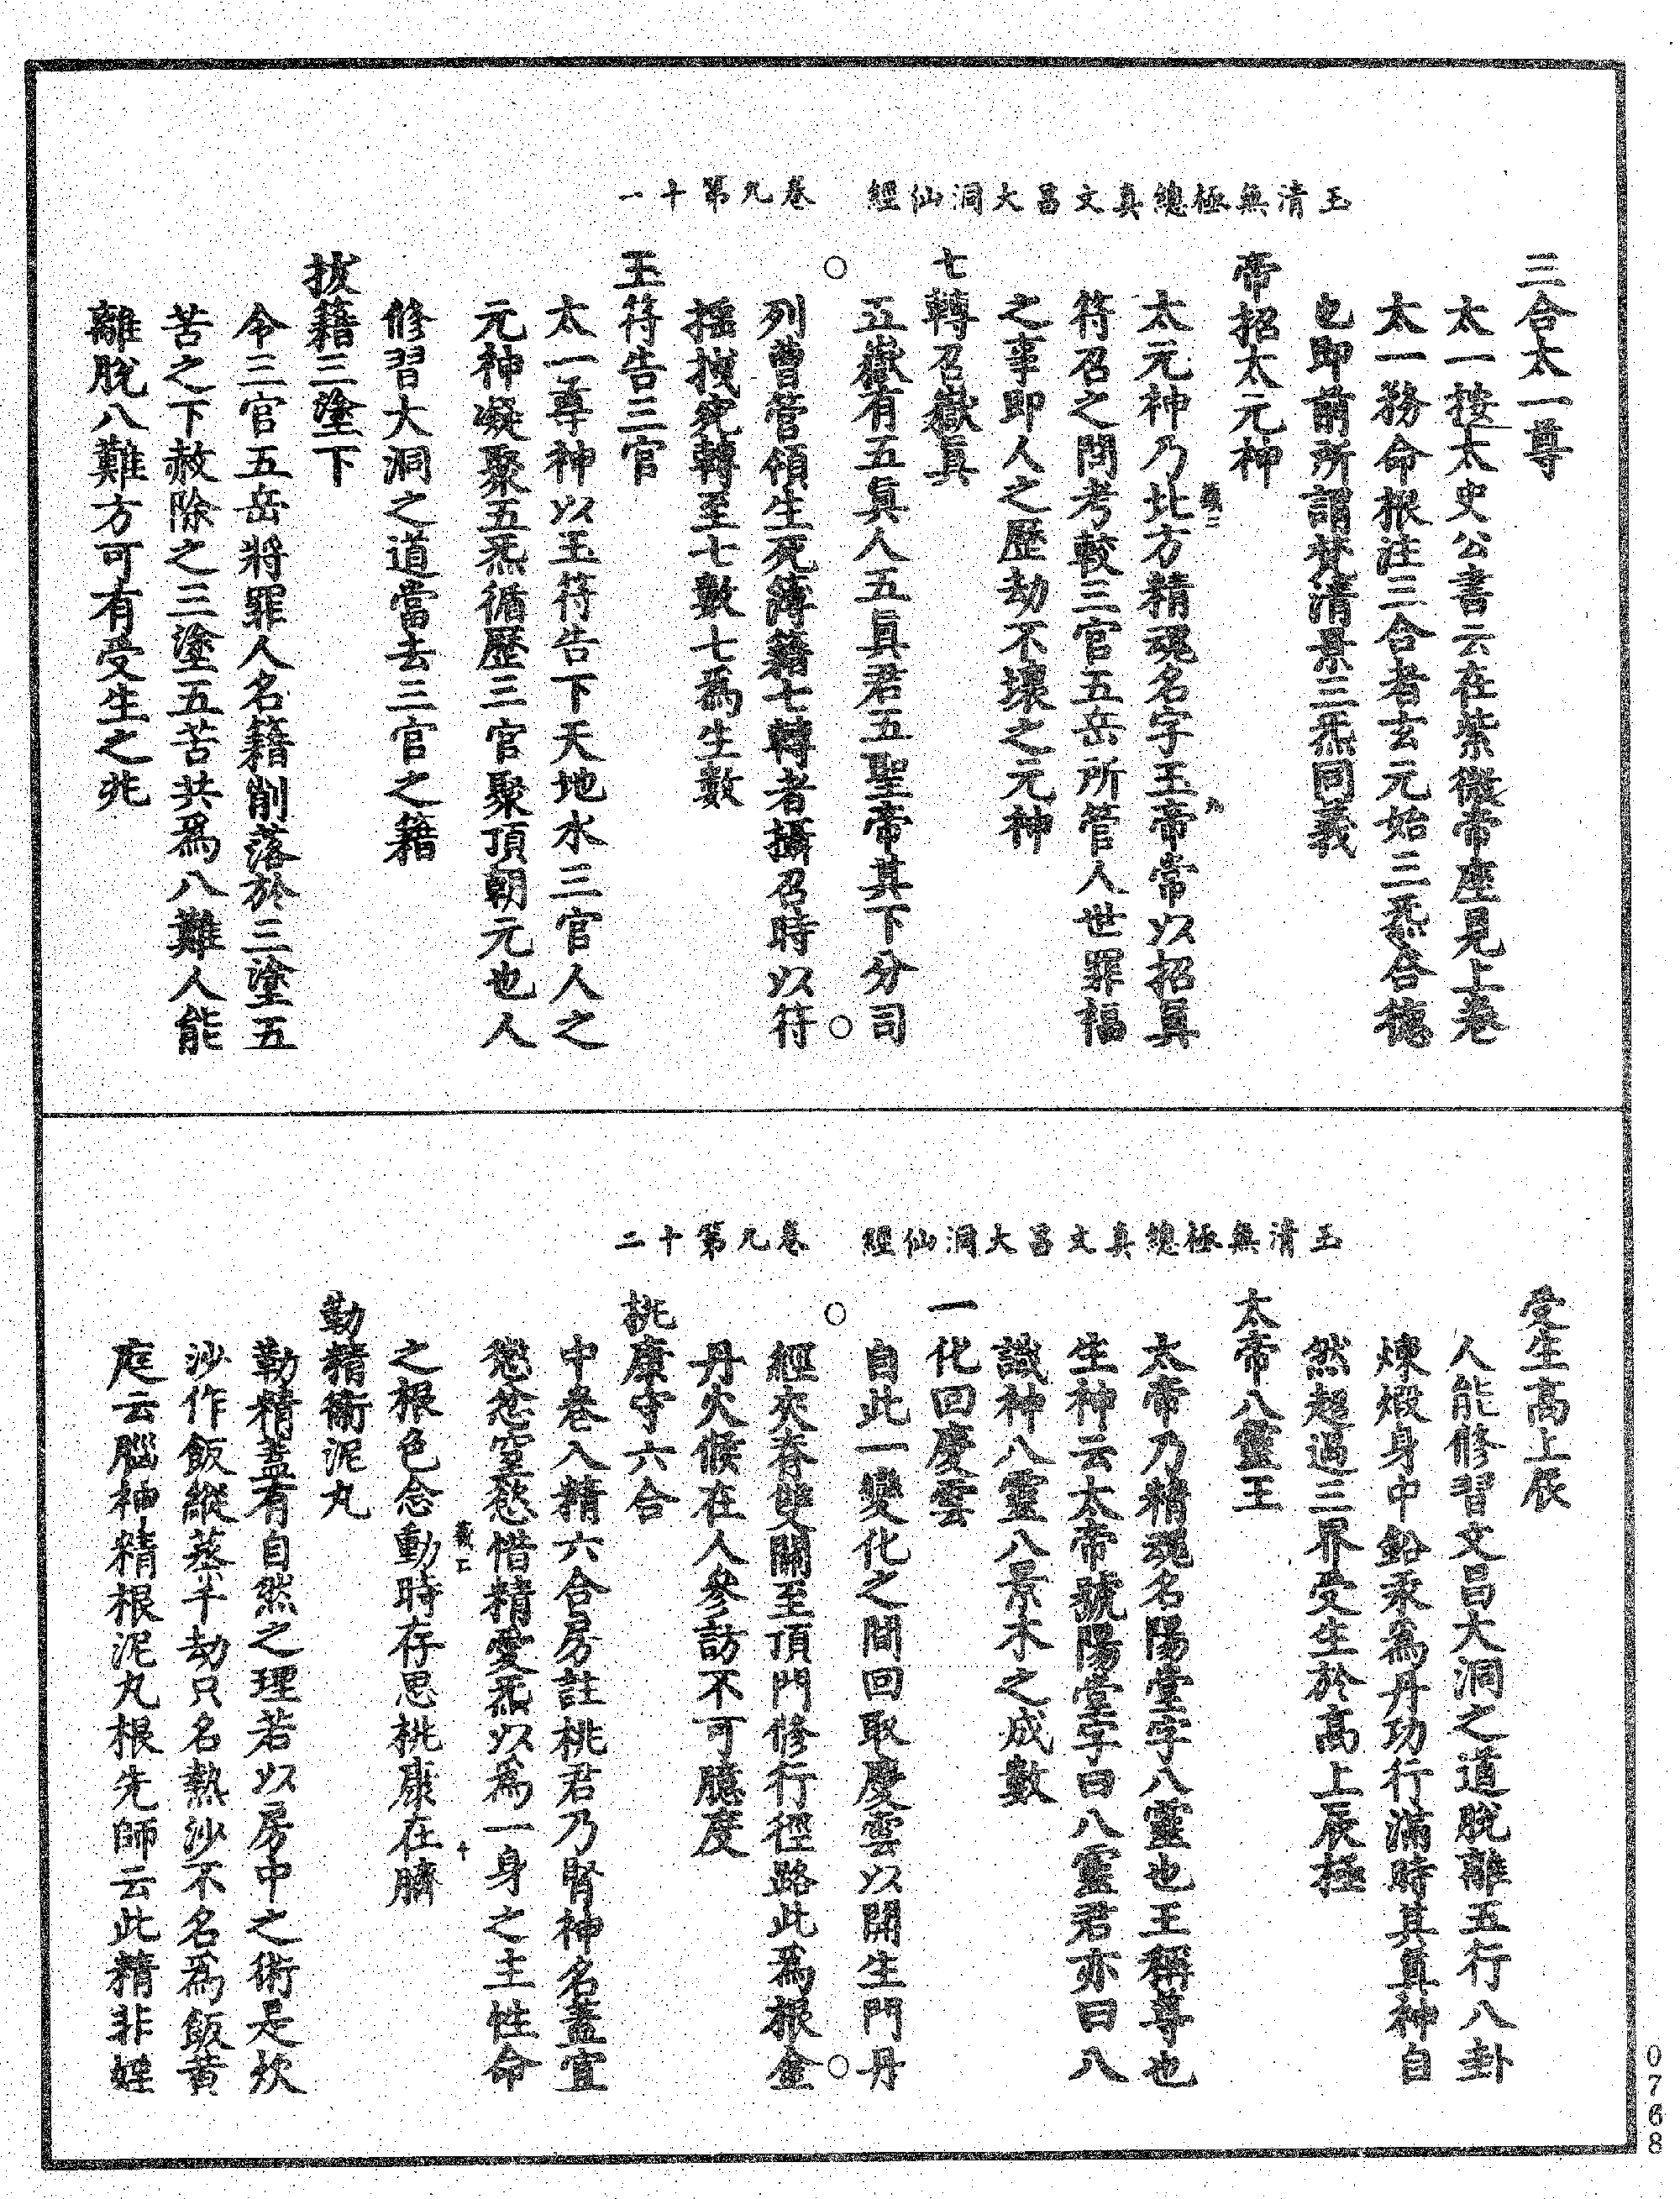 玉清無極總真文昌大洞仙經　卷九第十一
三合太一尊
太一按太史公書云在紫微帝座見上卷
太一務命根注三合者玄元始三炁合德
也即前所謂梵清景三炁同義
帝招太元神
太元神乃北方精魂名字玉帝常以招真
符召之問考較三官五岳所管人世罪福
之事即人之歷劫不壞之元神
七轉召嶽真
五嶽有五真人五真君五聖帝其下分司
列曹管領生死薄籍七轉者攝召時以符
搖拽宛轉至七數七為生數
玉符告三官
太一尊神以玉符告下天地水三官人之
元神凝聚五炁循歷三官聚頂朝元也人
修習大洞之道當去三官之籍
拔籍三塗下
令三官五岳將罪人名籍削落於三塗五
苦之下赦除之三塗五苦共為八難人能
離脫八難方可有受生之兆
玉清無極總真文昌大洞仙經　卷九第十二
受生高上辰
人能修習文昌大洞之道脫離五行八卦
煉煅身中鉛汞為丹功行滿時其真神自
然超過三界受生於高上辰極
太帝八靈王
太帝乃精魂名陽堂字八靈也王稱尊也
生神云太帝號陽堂字曰八靈君亦曰八
識神八靈八景木之成數
一化回慶雲
自此一變化之間回取慶雲以開生門丹
經夾脊雙關至頂門修行徑路此為根金
丹火候在人參訪不可臆度
桃康守六合
中卷入精六合房註桃君乃腎神名蓋宜
懲忿窒慾惜精愛炁以為一身之主性命
之根色念動時存思桃康在臍
勤精衛泥丸
勤精蓋有自然之理若以房中之術是炊
沙作飯縱蒸千劫只名熱沙不名為飯黃
庭云腦神精根泥丸根先師云此精非婬
0768